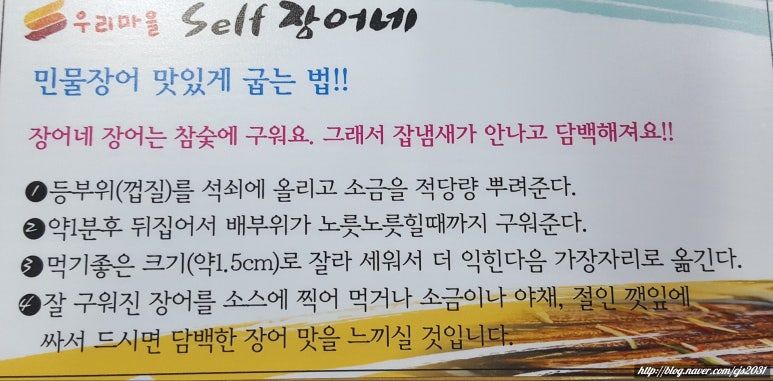 우리마을 Self 장어네
민물장어 맛있게 굽는 법!!
장어네 장어는 참숯에 구워요. 그래서 잡냄새가 안나고 담백해져요!!
1 등부위(껍질)를 석쇠에 올리고 소금을 적당량 뿌려준다.
2 약1분후 뒤집어서 배부위가 노릇노릇힐때까지 구워준다.
3 먹기좋은 크기(약1.5cm)로 잘라 세워서 더 익힌다음 가장자리로 옮긴다.
4 잘 구워진 장어를 소스에 찍어 먹거나 소금이나 야채, 절인 깻잎에
싸서 드시면 담백한 장어 맛을 느끼실 것입니다.
http://blog.naver.com/cjs2031